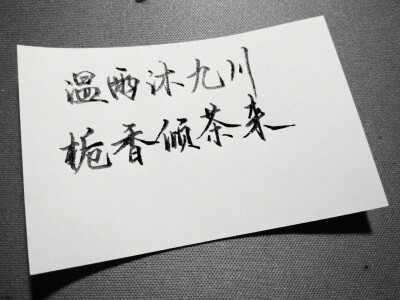 温雨沐九川
栀香倾茶来